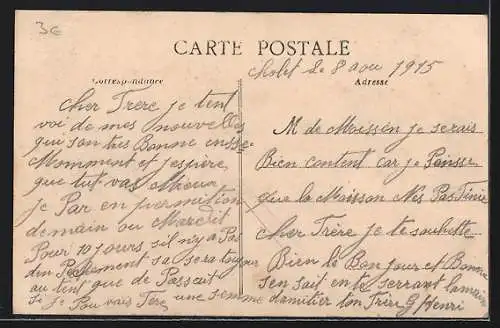 3€
CARTE POSTALE
Correspondance
Adresse
Cholet le 8 aou 1915
Cher Frère je tent
voi de mes nouvelles
qui son très Bonne en se
Momment et jespère
que tut vas Mieux
je Par en permition
demain ou Mardit
Pour 10 jours sil ny a Pas
den Pechement sa sera lon
au tent que de Passait
si je Pou vais Fere une semme
M de Moisson je serais
Bien content car je Pansse
que la Moisson Nes Pas Finie
cher Frère je te souhette
Bien le Bon jour et Bonne
sen sait en te serrant la main
damitier ton Frère G Henri